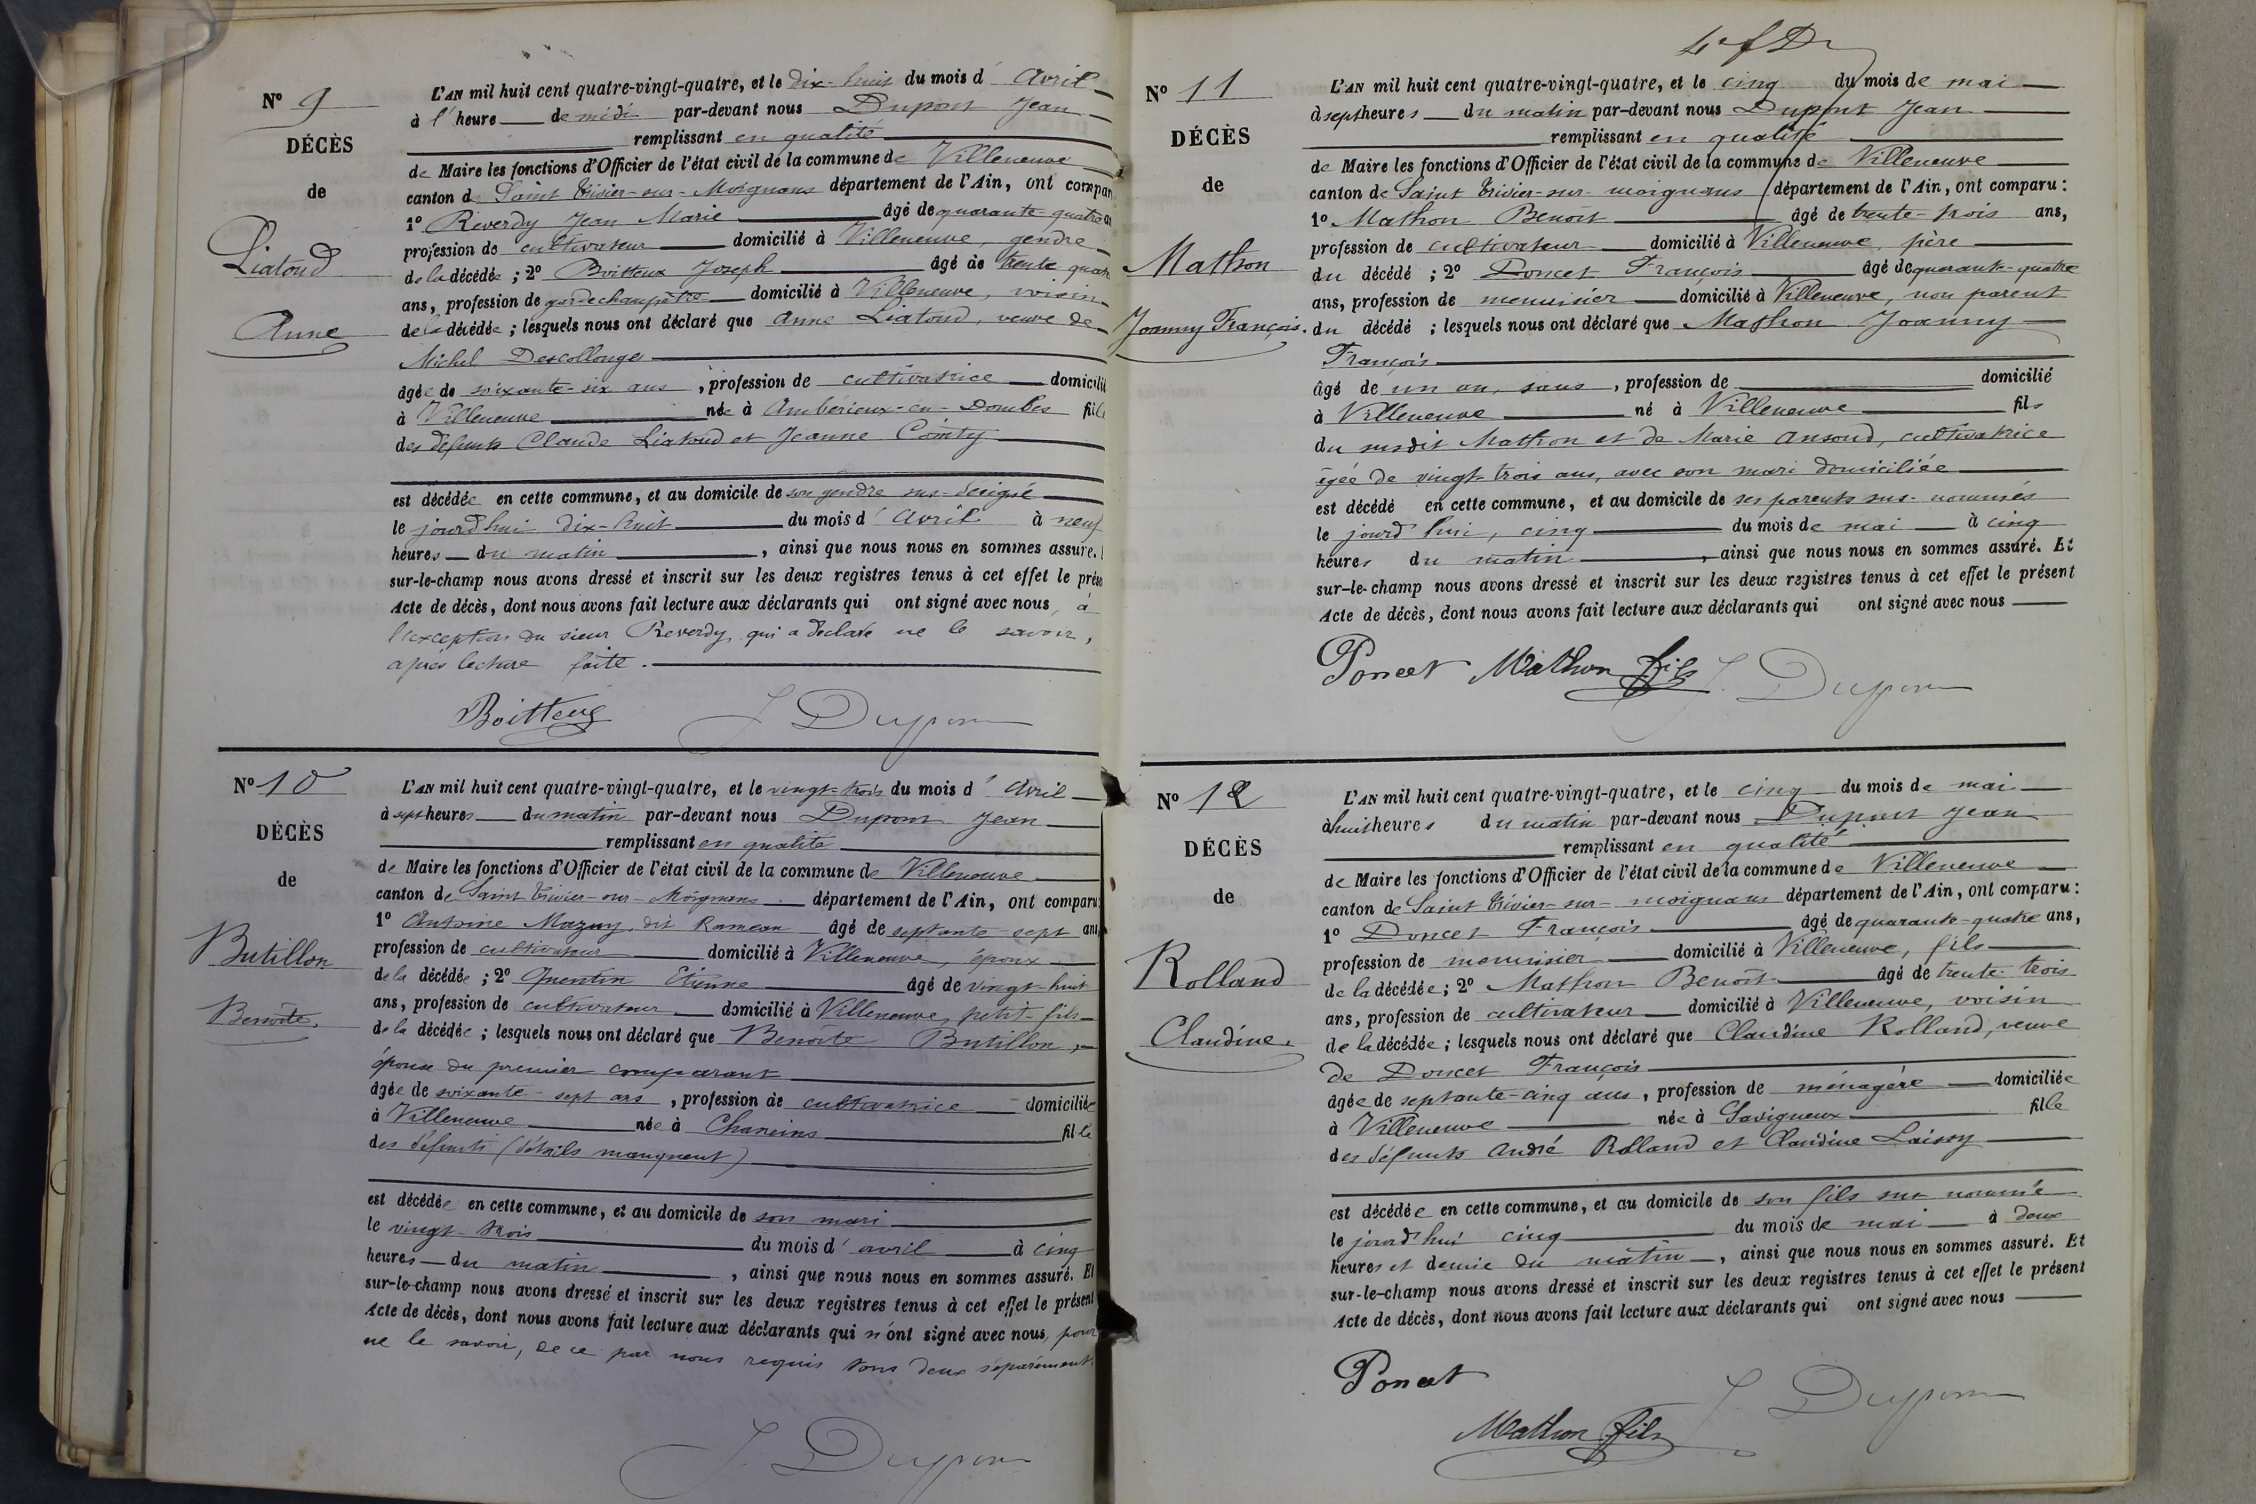 Nº 9
DÉCÈS
de
Liatoud
Anne
L'AN mil huit cent quatre-vingt-quatre, et le dix-huit du mois d' Avril
à l'heure de midi par-devant nous Dupont Jean
remplissant en qualité
de Maire les fonctions d'Officier de l'état civil de la commune de Villeneuve
canton de Saint Trivier-sur-Moignans département de l'Ain, ont compar
1º Reverdy Jean Marie âgé de quarante-quatre an
profession de cultivateur domicilié à Villeneuve, gendre
de la décédée ; 2º Boitteux Joseph âgé de trente quatr
ans, profession de garde champêtre domicilié à Villeneuve, voisin
de la décédée ; lesquels nous ont déclaré que Anne Liatoud, veuve de
Michel Descollonges
âgée de soixante-six ans , profession de cultivatrice domicilié
à Villeneuve née à Ambérieux-en-Dombes fille
des défunts Claude Liatoud et Jeanne Comty
est décédée en cette commune, et au domicile de son gendre sus-désigné
le jourd'hui dix-huit du mois d' avril à neuf
heures du matin , ainsi que nous nous en sommes assuré.
sur-le-champ nous avons dressé et inscrit sur les deux registres tenus à cet effet le prése
Acte de décès, dont nous avons fait lecture aux déclarants qui ont signé avec nous, à
l'exception du sieur Reverdy, qui a déclaré ne le savoir,
après lecture faite.
Boitteux J Dupont
Nº 10
DÉCÈS
de
Butillon
Benoîte.
L'AN mil huit cent quatre-vingt-quatre, et le vingt-trois du mois d' Avril
à sept heures du matin par-devant nous Dupont Jean
remplissant en qualité
de Maire les fonctions d'Officier de l'état civil de la commune de Villeneuve
canton de Saint Trivier-sur-Moignans département de l'Ain, ont comparu:
1º Antoine Mazuy, dit Rameau âgé de septante-sept ans
profession de cultivateur domicilié à Villeneuve, époux
de la décédée ; 2º Quentin Etienne âgé de vingt-huit
ans, profession de cultivateur domicilié à Villeneuve, petit-fils
de la décédée ; lesquels nous ont déclaré que Benoîte Butillon,
épouse du premier comparant
âgée de soixante-sept ans , profession de cultivatrice domiciliée
à Villeneuve née à Chaneins fille
des défunts (détails manquent)
est décédée en cette commune, et au domicile de son mari
le vingt-trois du mois d' avril à cinq
heures du matin , ainsi que nous nous en sommes assuré. Et
sur-le-champ nous avons dressé et inscrit sur les deux registres tenus à cet effet le présent
Acte de décès, dont nous avons fait lecture aux déclarants qui n'ont signé avec nous, pour
ne le savoir, de ce par nous requis tous deux séparément.
J. Dupont
Nº 11
DÉCÈS
de
Mathon
Joanny François.
L'AN mil huit cent quatre-vingt-quatre, et le cinq du mois de mai
à sept heures du matin par-devant nous Dupont Jean
remplissant en qualité
de Maire les fonctions d'Officier de l'état civil de la commune de Villeneuve
canton de Saint Trivier-sur-moignans département de l'Ain, ont comparu :
1º Mathon Benoît âgé de trente-trois ans,
profession de cultivateur domicilié à Villeneuve, père
du décédé ; 2º Poncet François âgé de quarante-quatre
ans, profession de menuisier domicilié à Villeneuve, non parent
du décédé ; lesquels nous ont déclaré que Mathon Joanny
François
âgé de un an, sans , profession de domicilié
à Villeneuve né à Villeneuve fils
du susdit Mathon et de Marie Ansoud, cultivatrice
âgée de vingt-trois ans, avec son mari domiciliée
est décédé en cette commune, et au domicile de ses parents sus-nommés
le jourd'hui, cinq du mois de mai à cinq
heures du matin , ainsi que nous nous en sommes assuré. Et
sur-le-champ nous avons dressé et inscrit sur les deux registres tenus à cet effet le présent
Acte de décès, dont nous avons fait lecture aux déclarants qui ont signé avec nous
Poncet Mathon fils J Dupont
Nº 12
DÉCÈS
de
Rolland
Claudine.
L'AN mil huit cent quatre-vingt-quatre, et le cinq du mois de mai
à huit heures du matin par-devant nous Dupont Jean
remplissant en qualité
de Maire les fonctions d'Officier de l'état civil de la commune de Villeneuve
canton de Saint Trivier-sur-moignans département de l'Ain, ont comparu :
1º Poncet François âgé de quarante-quatre ans,
profession de menuisier domicilié à Villeneuve, fils
de la décédée ; 2º Mathon Benoît âgé de trente-trois
ans, profession de cultivateur domicilié à Villeneuve, voisin
de la décédée ; lesquels nous ont déclaré que Claudine Rolland, veuve
de Poncet François
âgée de septante-cinq ans , profession de ménagère domiciliée
à Villeneuve née à Savigneux fille
des défunts André Rolland et Claudine Laissy
est décédée en cette commune, et au domicile de son fils sus nommé
le jourd'hui cinq du mois de mai à deux
heures et demie du matin , ainsi que nous nous en sommes assuré. Et
sur-le-champ nous avons dressé et inscrit sur les deux registres tenus à cet effet le présent
Acte de décès, dont nous avons fait lecture aux déclarants qui ont signé avec nous
Poncet J. Dupont
Mathon fils